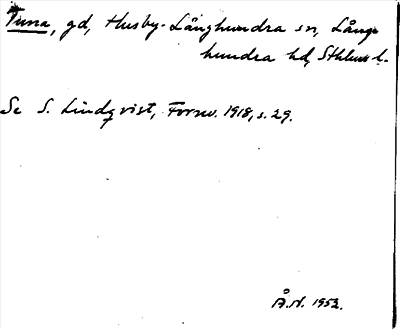 Tuna, gd, Husby-Långhundra sn, Lång-
hundra hd, Sthlms l.
Se S. Lindqvist, Fornv. 1918, s. 29.
Å.N. 1952.